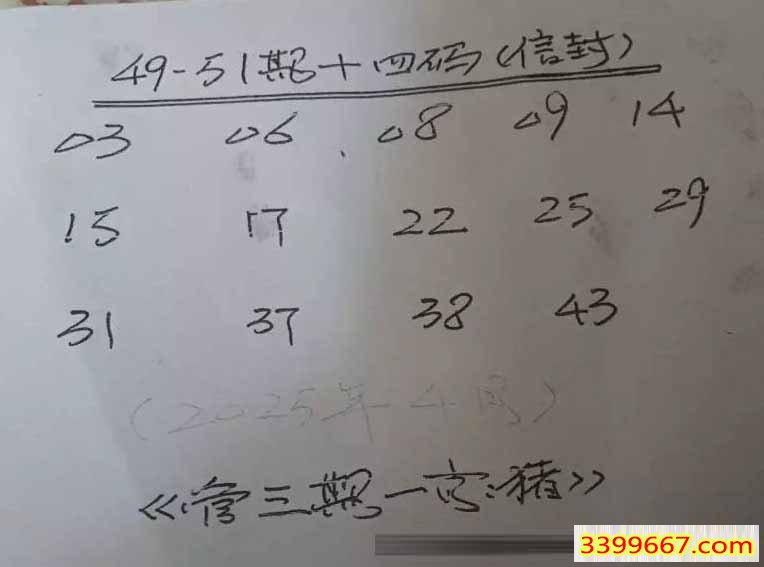 49-51期十四码(信封)
03 06 08 09 14
15 17 22 25 29
31 37 38 43
(2025年-4月)
《管三期一肖:猪》
3399667.com